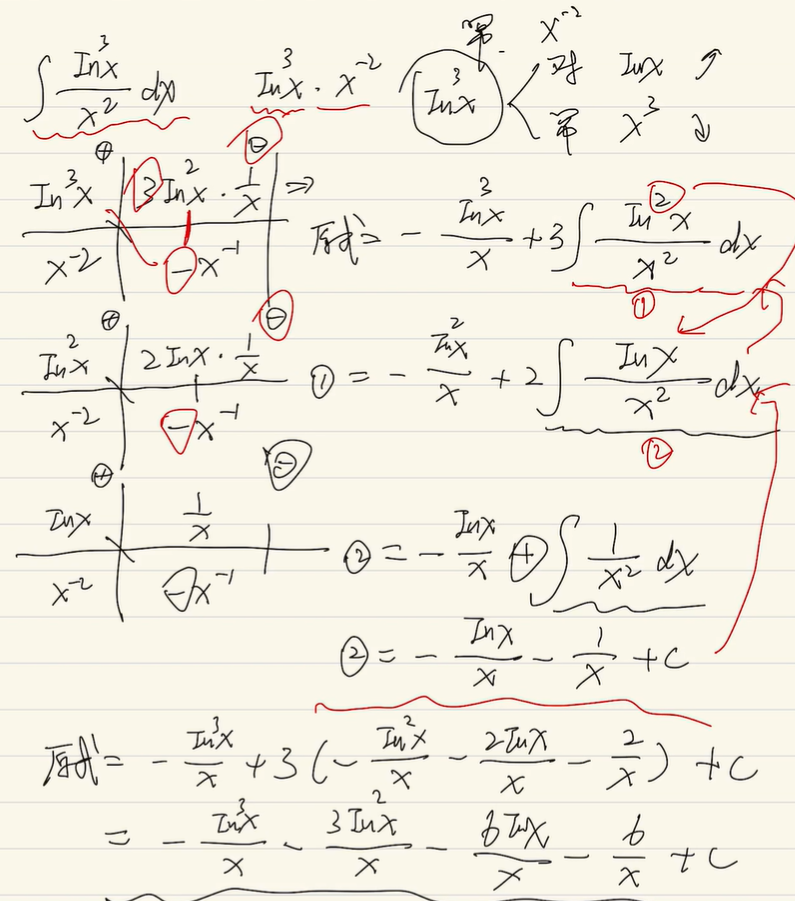 幂 x⁻²
∫ ln³x/x² dx ln³x · x⁻² ln³x 对 lnx ↗
幂 x³ ↓
⊕ ⊖
ln³x 3 ln²x · 1/x ⇒
x⁻² −x⁻¹
原式 = − ln³x/x + 3∫ ln²x/x² dx
①
⊕ ⊖
ln²x 2 lnx · 1/x
x⁻² −x⁻¹
① = − ln²x/x + 2∫ lnx/x² dx
②
⊕ ⊖
lnx 1/x
x⁻² −x⁻¹
② = − lnx/x ⊕ ∫ 1/x² dx
② = − lnx/x − 1/x + c
原式 = − ln³x/x + 3(− ln²x/x − 2lnx/x − 2/x) + c
= − ln³x/x − 3ln²x/x − 6lnx/x − 6/x + c